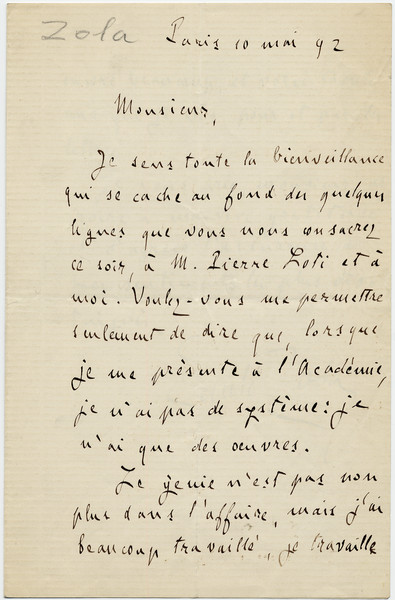 Zola
Paris 10 mai 92
Monsieur,
Je sens toute la bienveillance
qui se cache au fond des quelques
lignes que vous nous consacrez
ce soir, à M. Pierre Loti et à
moi. Voulez-vous me permettre
seulement de dire que, lorsque
je me présente à l'Académie,
je n'ai pas de système: je
n'ai que des œuvres.
Le génie n'est pas non
plus dans l'affaire, mais j'ai
beaucoup travaillé, je travaille